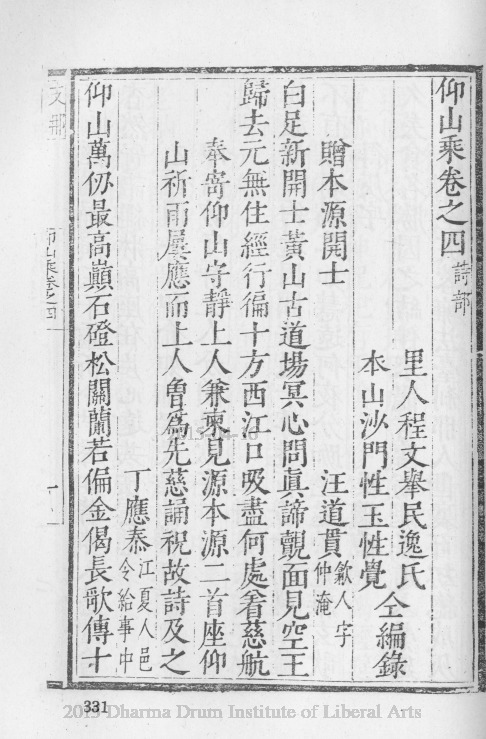 仰山乘卷之四 詩部
里人程文舉民逸氏
本山沙門性玉性覺 仝編錄
贈本源開士 汪道貫 歙人字仲淹
白足新開士黃山古道場冥心問真諦覿面見空王
歸去元無住經行徧十方西江口吸盡何處着慈航
奉寄仰山守靜上人兼柬見源本源二首座仰
山祈雨屢應而上人曾為先慈誦祝故詩及之
丁應泰 江夏人邑令給事中
仰山萬仞最高巔石磴松關蘭若偏金偈長歌傳十
仰山乘卷之四
一
331
2013 Dharma Drum Institute of Liberal Arts